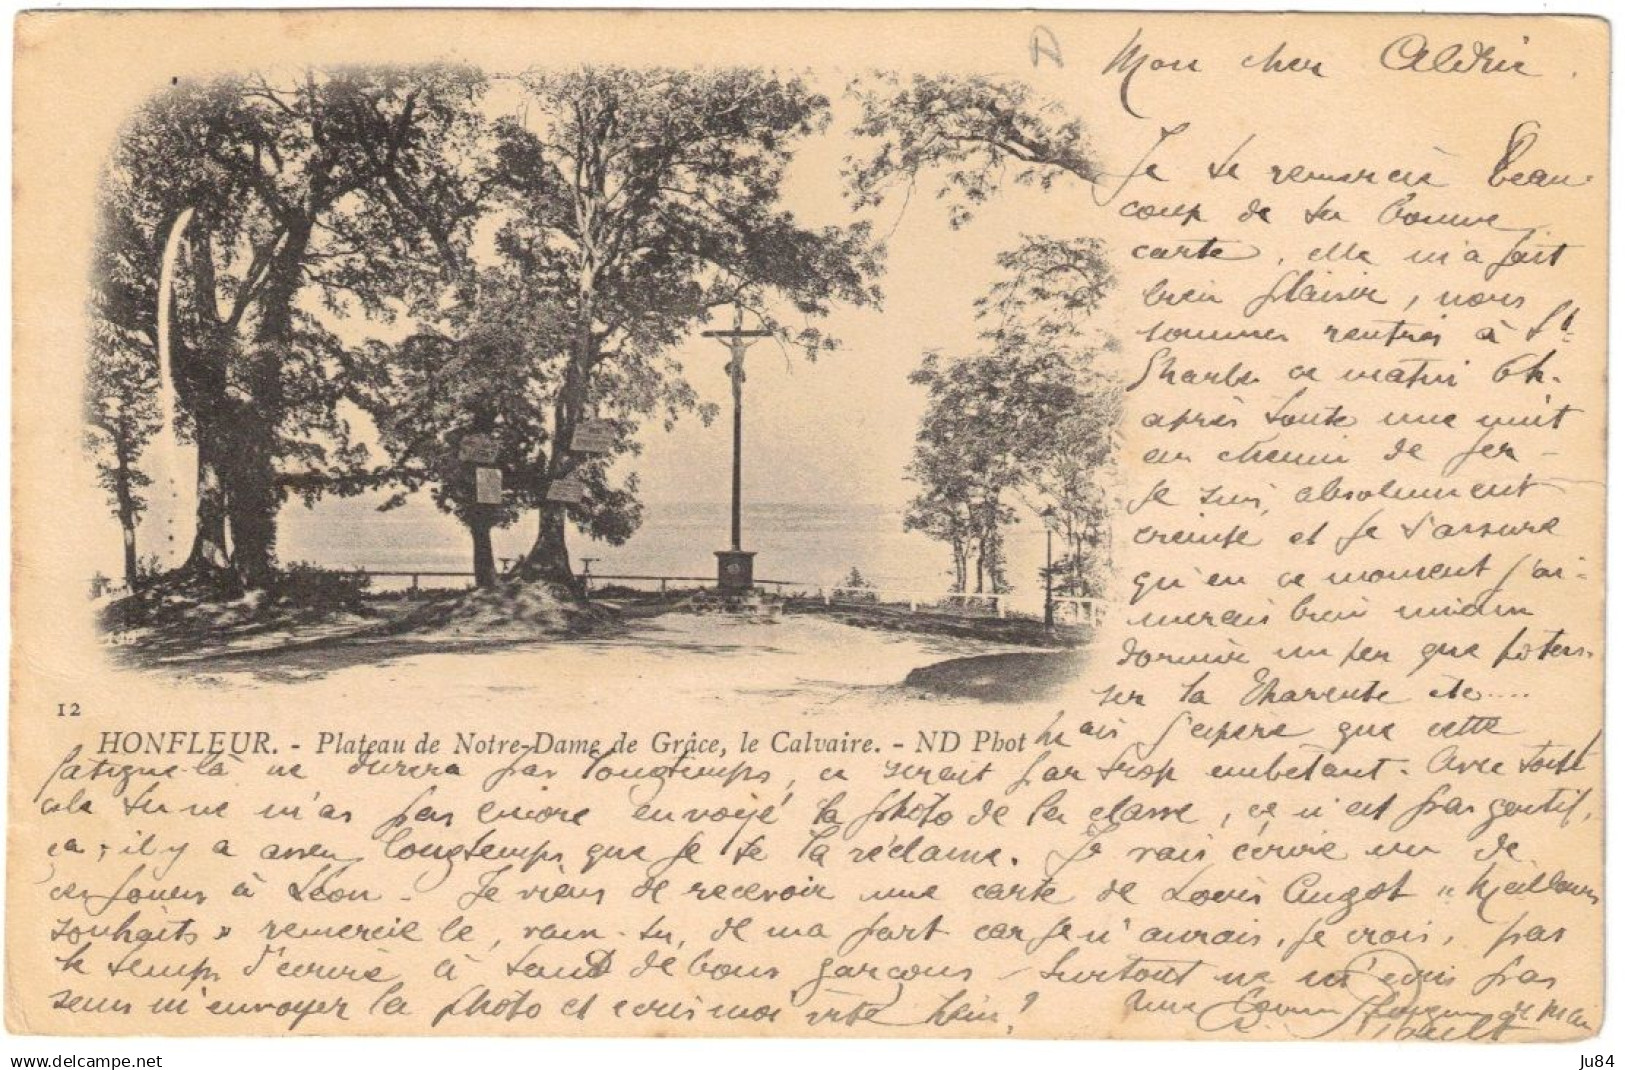 Mon cher
Je te remercie beau-
coup de ta bonne
carte, elle m'a fait
bien plaisir, nous
sommes rentrés à St
Charles ce matin 6h.
après toute une nuit
en chemin de fer -
je suis absolument
éreinté et je t'assure
qu'en ce moment j'ai-
merais bien mieux
dormir un peu que potas-
ser la Charente etc....
12
HONFLEUR. - Plateau de Notre-Dame de Grâce, le Calvaire. - ND Phot
Mais j'espère que cette
fatigue-là ne durera pas longtemps, ce serait par trop embêtant. Avec tout
cela tu ne m'as pas encore envoyé la photo de la classe, ce n'est pas gentil,
ça; il y a assez longtemps que je te la réclame. Je vais écrire un de
ces jours à Léon - Je viens de recevoir une carte de Louis Augot "Meilleurs
souhaits" remercie le, veux-tu, de ma part car je n'aurais, je crois, pas
le temps d'écrire à tant de bons garçons - Surtout ne m'écris pas
sans m'envoyer la photo et écris moi vite hein!
Ju84
www.delcampe.net